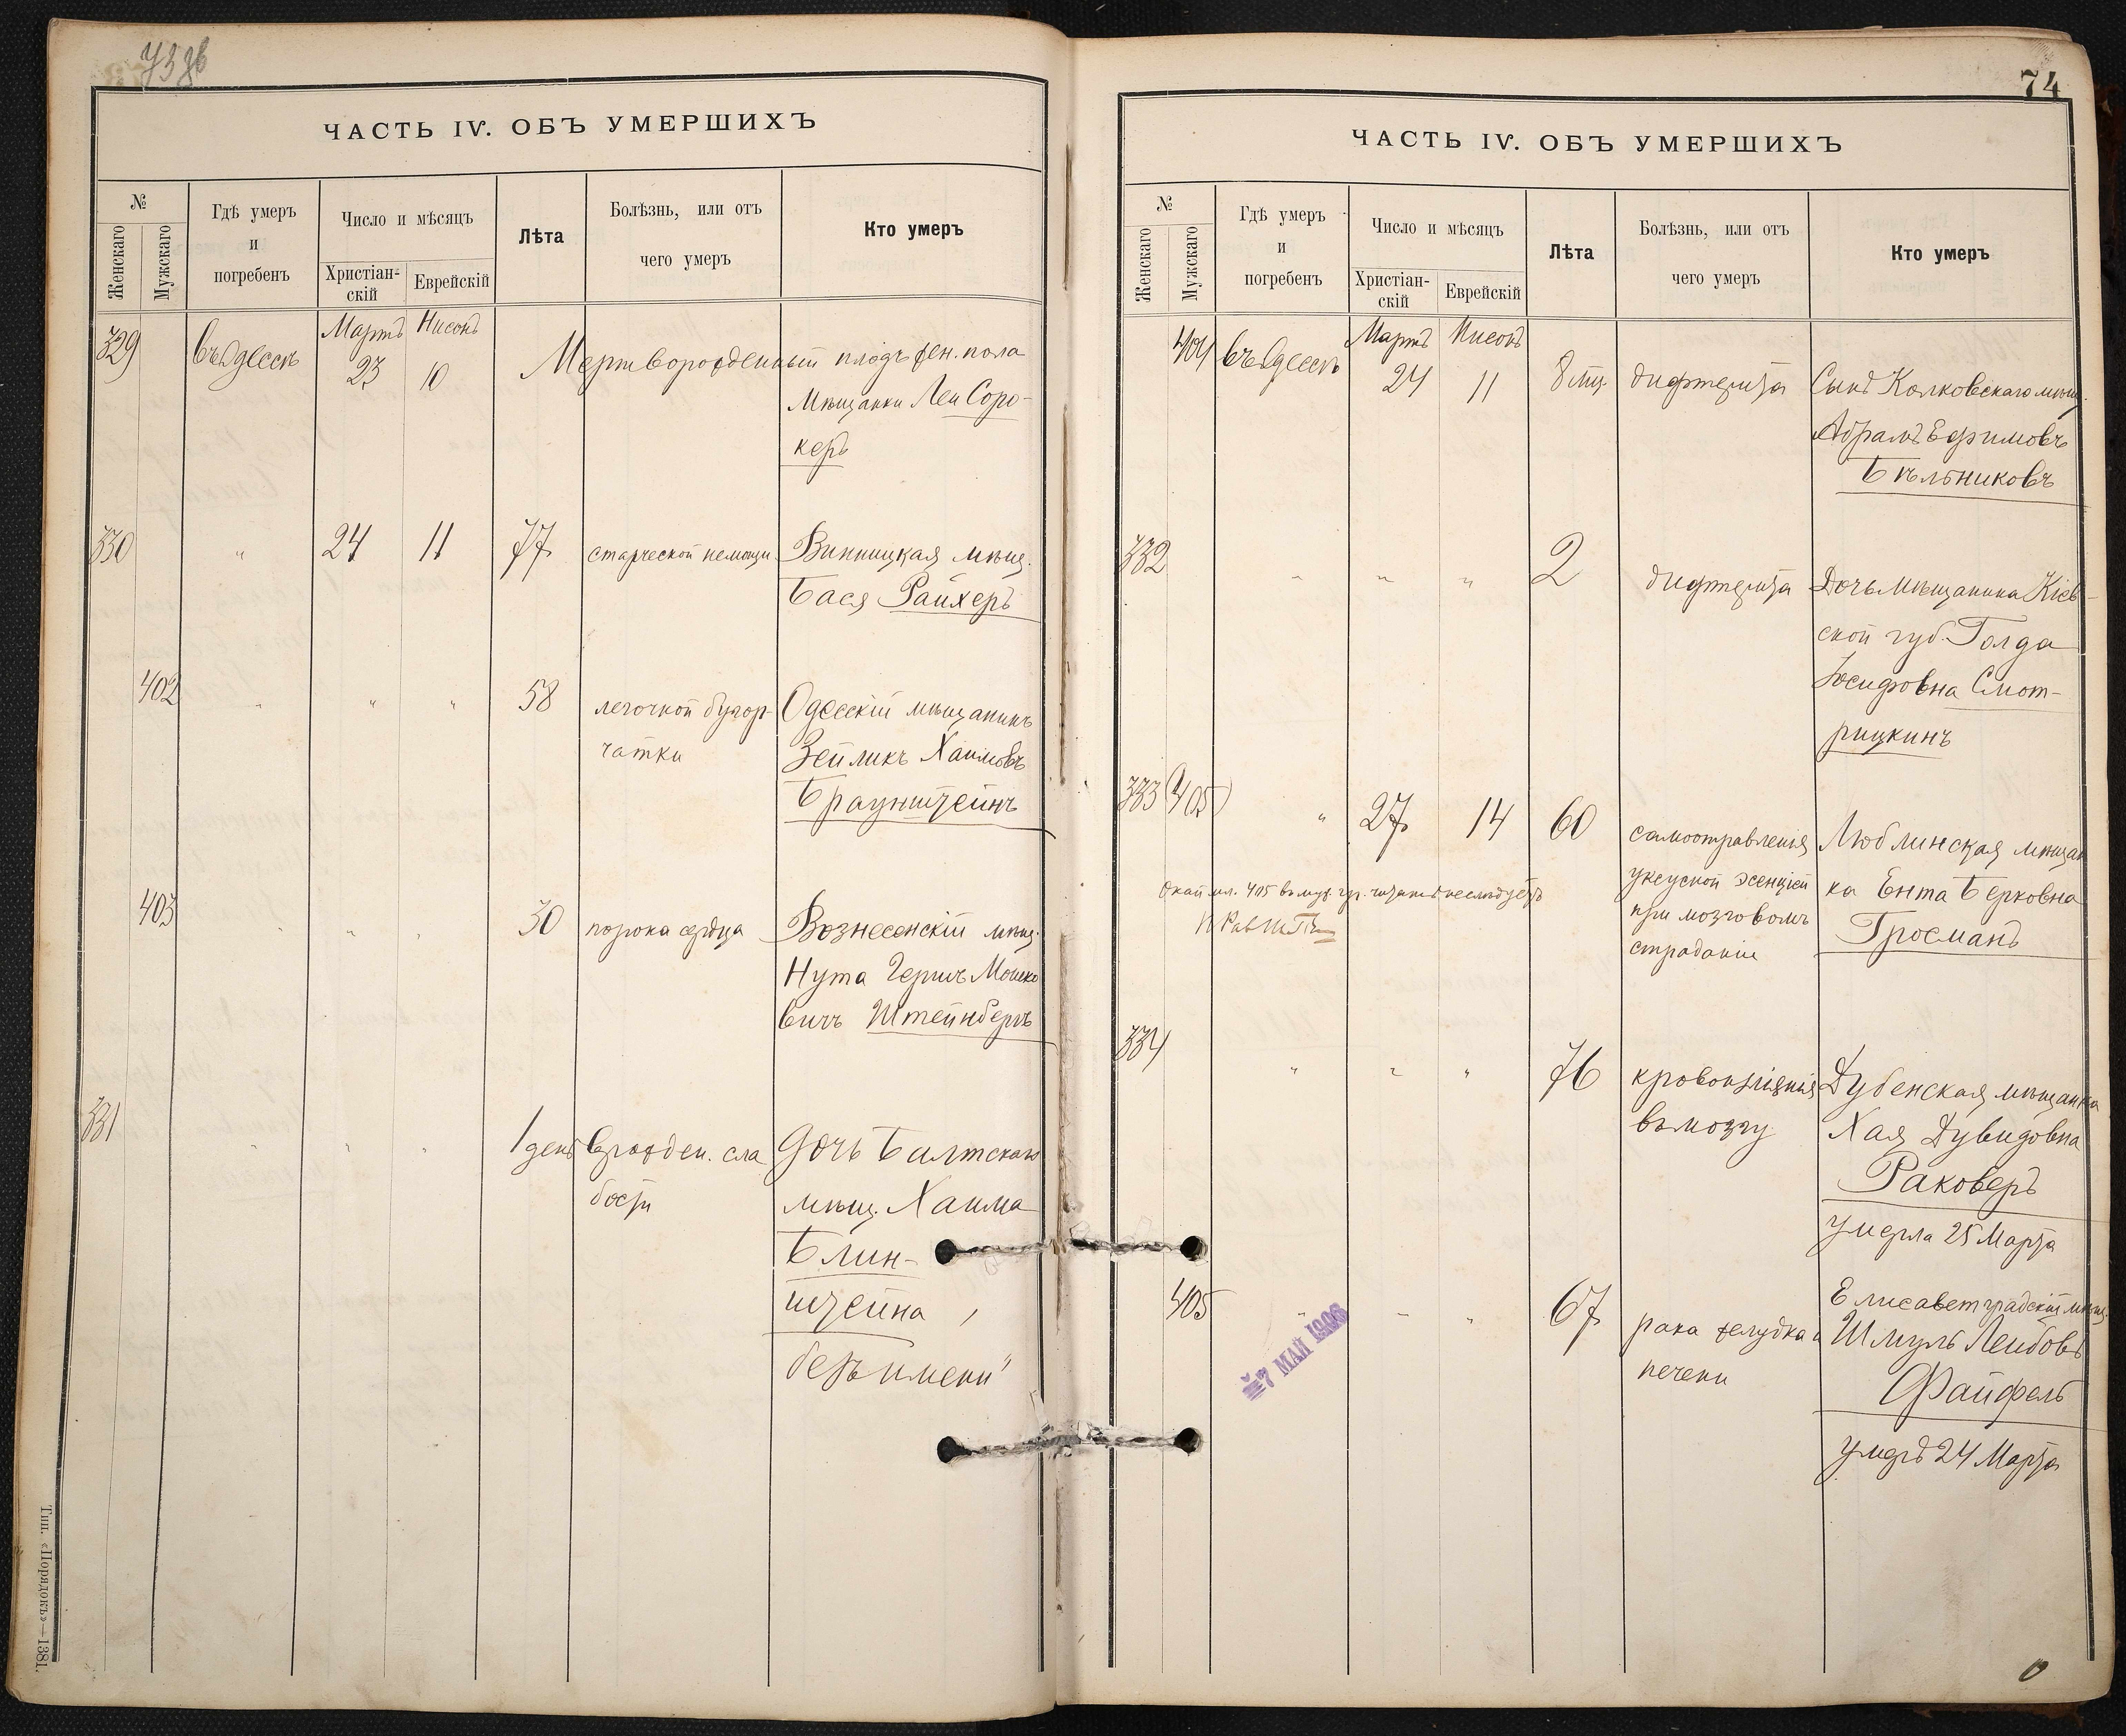 ЧАСТЬ IV. ОБЪ УМЕРШИХЪ
№
Женскаго
Мужскаго
Гдѣ умеръ
и
погребенъ
Число и мѣсяцъ
Христіан-
скій
Еврейскій
Лѣта
Болѣзнь, или отъ
чего умеръ
Кто умеръ
329 въ Одессѣ Мартъ 23 Нисонъ 10 Мертворожденный плодъ жен. пола
мѣщанки Леи Соро-
керъ
330 " 24 11 77 старческой немощи Винницкая мѣщ.
Бася Райхеръ
402 " " " 58 легочной бугор- Одесскій мѣщанинъ
чатки Зейликъ Хаимовъ
Браунштейнъ
403 " " " 30 порока сердца Вознесенскій мѣщ.
Нута Гершъ Мошко
вичъ Штейнбергъ
331 " " " 1 день врожден. сла Дочь Балтскаго
бости мѣщ. Хаима
Блин-
штейна,
безъ имени"
Тип. «Порядокъ»—1881.
74
ЧАСТЬ IV. ОБЪ УМЕРШИХЪ
№
Женскаго
Мужскаго
Гдѣ умеръ
и
погребенъ
Число и мѣсяцъ
Христіан-
скій
Еврейскій
Лѣта
Болѣзнь, или отъ
чего умеръ
Кто умеръ
404 въ Одессѣ Мартъ 24 Нисонъ 11 8 мц. дифтерита Сынъ Колковскаго мѣщ.
Абрамъ Ефимовъ
Бѣльниковъ
332 " " " 2 дифтерита Дочь мѣщанина Кіев-
ской губ. Голда
Іосифовна Смот-
рицкинъ
333 (405) " 27 14 60 самоотравленія Люблинская мѣщан
уксусной эсенціей ка Ента Берковна
при мозговомъ Гросманъ
страданіи
405 въ муж. гр. читать не слѣдуетъ
334 " " " 76 кровоизліянія Дубенская мѣщанка
въ мозгу Хая Дувидовна
Раковеръ
умерла 25 Марта
405 " " " 67 рака желудка и Елисаветградскій мѣщ.
печени Шмуль Лейбовъ
Файфель
умеръ 24 Марта
7 МАЙ 1906